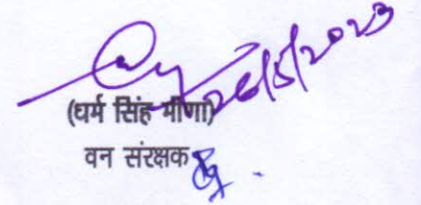 26/5/2023
(धर्म सिंह मीणा)
वन संरक्षक